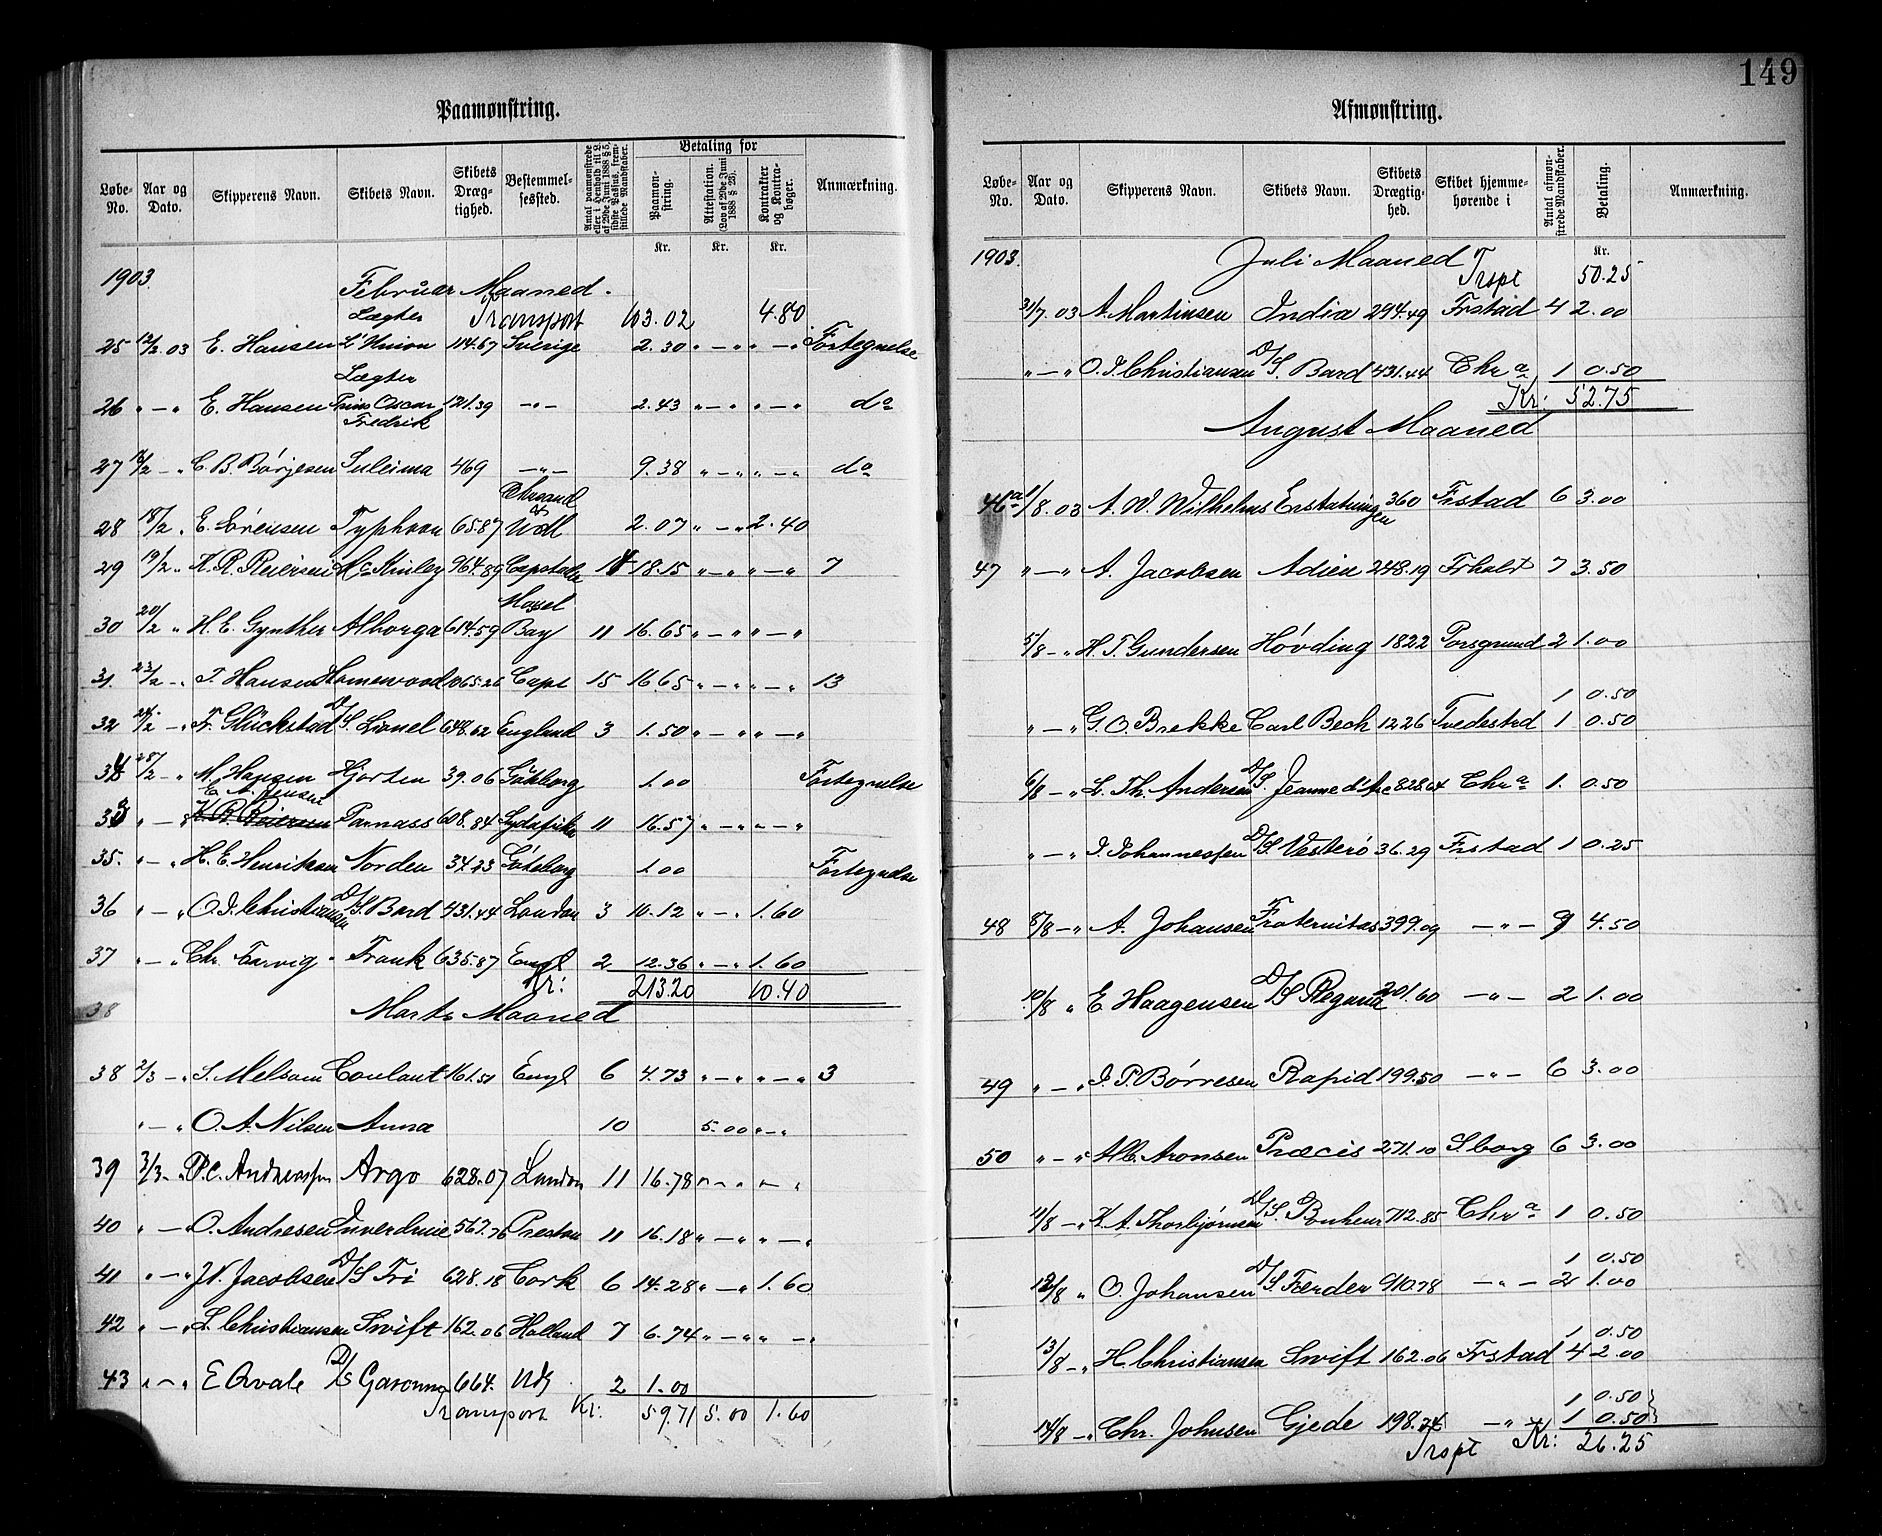 Paamønstring.
Løbe-No. Aar og Dato. Skipperens Navn. Skibets Navn. Skibets Drægtighed. Bestemmelsessted. Antal paamønstrede eller i Henhold til L. af 29de Juni 1888 § 5, sidste Passus, fremstillede Mandskaber. Betaling for Paamønstring. Attestation. (Lov af 29de Juni 1888 § 23). Kontrakter og Kontrabøger. Anmærkning.
Kr. Kr. Kr.
1903.
Februar Maaned.
Transport 103.02 4.80
25 12/2 03 E. Hansen Lægter L'Union 114.67 Sverige 2.30 " — " " — " Fortegnelse
26 " — " E. Hansen Lægter Prins Oscar Fredrik 121.39 — " — 2.43 " — " " — " do
27 16/2 - " C. B. Børjesen Suleima 469 — " — 9.38 " — " " — " do
28 18/2 " E. Sørensen Typhoon 65.87 Chrsand & Udl 2.07 " — " 2.40
29 19/2 " K. R. Reiersen Mc Kinley 964.89 18.15 " — " " — " 7
30 20/2 " H. E. Gynther Alborga 614.59 Mossel Bay 11 16.65 " — " " — "
31. 23/2 - " T. Hansen Homewood 1065.26 Cape 15 16.65 " — " " — " 13
32 24/2 — " Fr. Glückstad D/S. Lionel 648.62 England 3 1.50 " — " " — "
34 28/2 — " M. Hansen Hjorten 39.06 Göteborg 1.00 Fortegnelse
33 " — " E. A. Jensen K. R. Reiersen Parnass 608.84 Sydafrika 11 16.57 " — " " — "
35. " — " H. E. Henriksen Norden 34.43 Göteborg 1.00 Fortegnelse
36 " — " O. J. Christiansen D/S Bard 431.44 London 3 10.12 " — " 1.60
37 " — " Chr. Farvig Frank 635.87 Engl 2 12.36 " — " 1.60
Kr: 213.20 10.40
38 Marts Maaned
38 2/3 — " S. Melsom Coulant 161.51 Engl 6 4.73 " — " " — " 3
" — " O. A. Nilsen Anna 10 5.00 " — "
39 3/3 - " P.C. Andreassen Argo 628.07 London 11 16.78 " — " " — "
40 " — O. Andresen Inverdruie 567.76 Preston 11 16.18 " — " " — "
41 " — " N. Jacobsen D/S Fri 628.18 Cork 6 14.28 " — " 1.60
42 " — " L. Christiansen Swift 162.06 Holland 7 6.74 " — " " — "
43 " — " E Qvale D/S Garonna 664. Udl 2 1.00
Transport Kr: 59.71 5.00 1.60
149
Afmønstring.
Løbe-No. Aar og Dato. Skipperens Navn. Skibets Navn. Skibets Drægtighed. Skibet hjemmehørende i Antal afmønstrede Mandskaber. Betaling. Anmærkning.
Kr.
1903. Juli Maaned
Trspt 50.25
31/7 03 A. Martinsen India 294.49 Frstad 4 2.00
" — " O. J. Christiansen D/S. Bard 431.44 Chra 1 0.50
Kr: 52.75
August Maaned
46a 1/8. 03 A. W. Wilhelms Erstatningen 360 Frstad 6 3.00
47 " — " A. Jacobsen Adien 248.19 Frhald 7 3.50
5/8 - " H. T. Gundersen Høvding 1822 Porsgrund 2 1.00
1 0.50
" — " G. O. Brekke Carl Bech 1226 Tvedestrd 1 0.50
6/8 - " L. Th. Andersen D/S. Jeanne d'Arc 828.64 Chra 1. 0.50
" — " J. Johannessen D/S Vesterø 36.29 Frstad 1 0.25
48 8/8 — " A. Johansen Fraternitas 399.09 — " — 9 4.50
10/8 " E. Haagensen D/S Regana 201.60 — " — 2 1.00
49 " — " J. P. Børresen Rapid 199.50 — " — 6 3.00
50 " — " Alb. Aronsen Præcis 271.10 S.borg 6 3.00
11/8 — " K. A. Thorbjørnsen D/S. Bonheur 712.85 Chra 1 0.50
1 0.50
12/8 " O. Johansen D/S Færder 910.78 — " — 2 1.00
1 0.50
13/8 - " H. Christiansen Swift 162.06 Frstad 4 2.00
1 0.50
14/8 — " Chr. Johnsen Gjede 198.74 — " — 1 0.50
Trspt Kr: 26.25